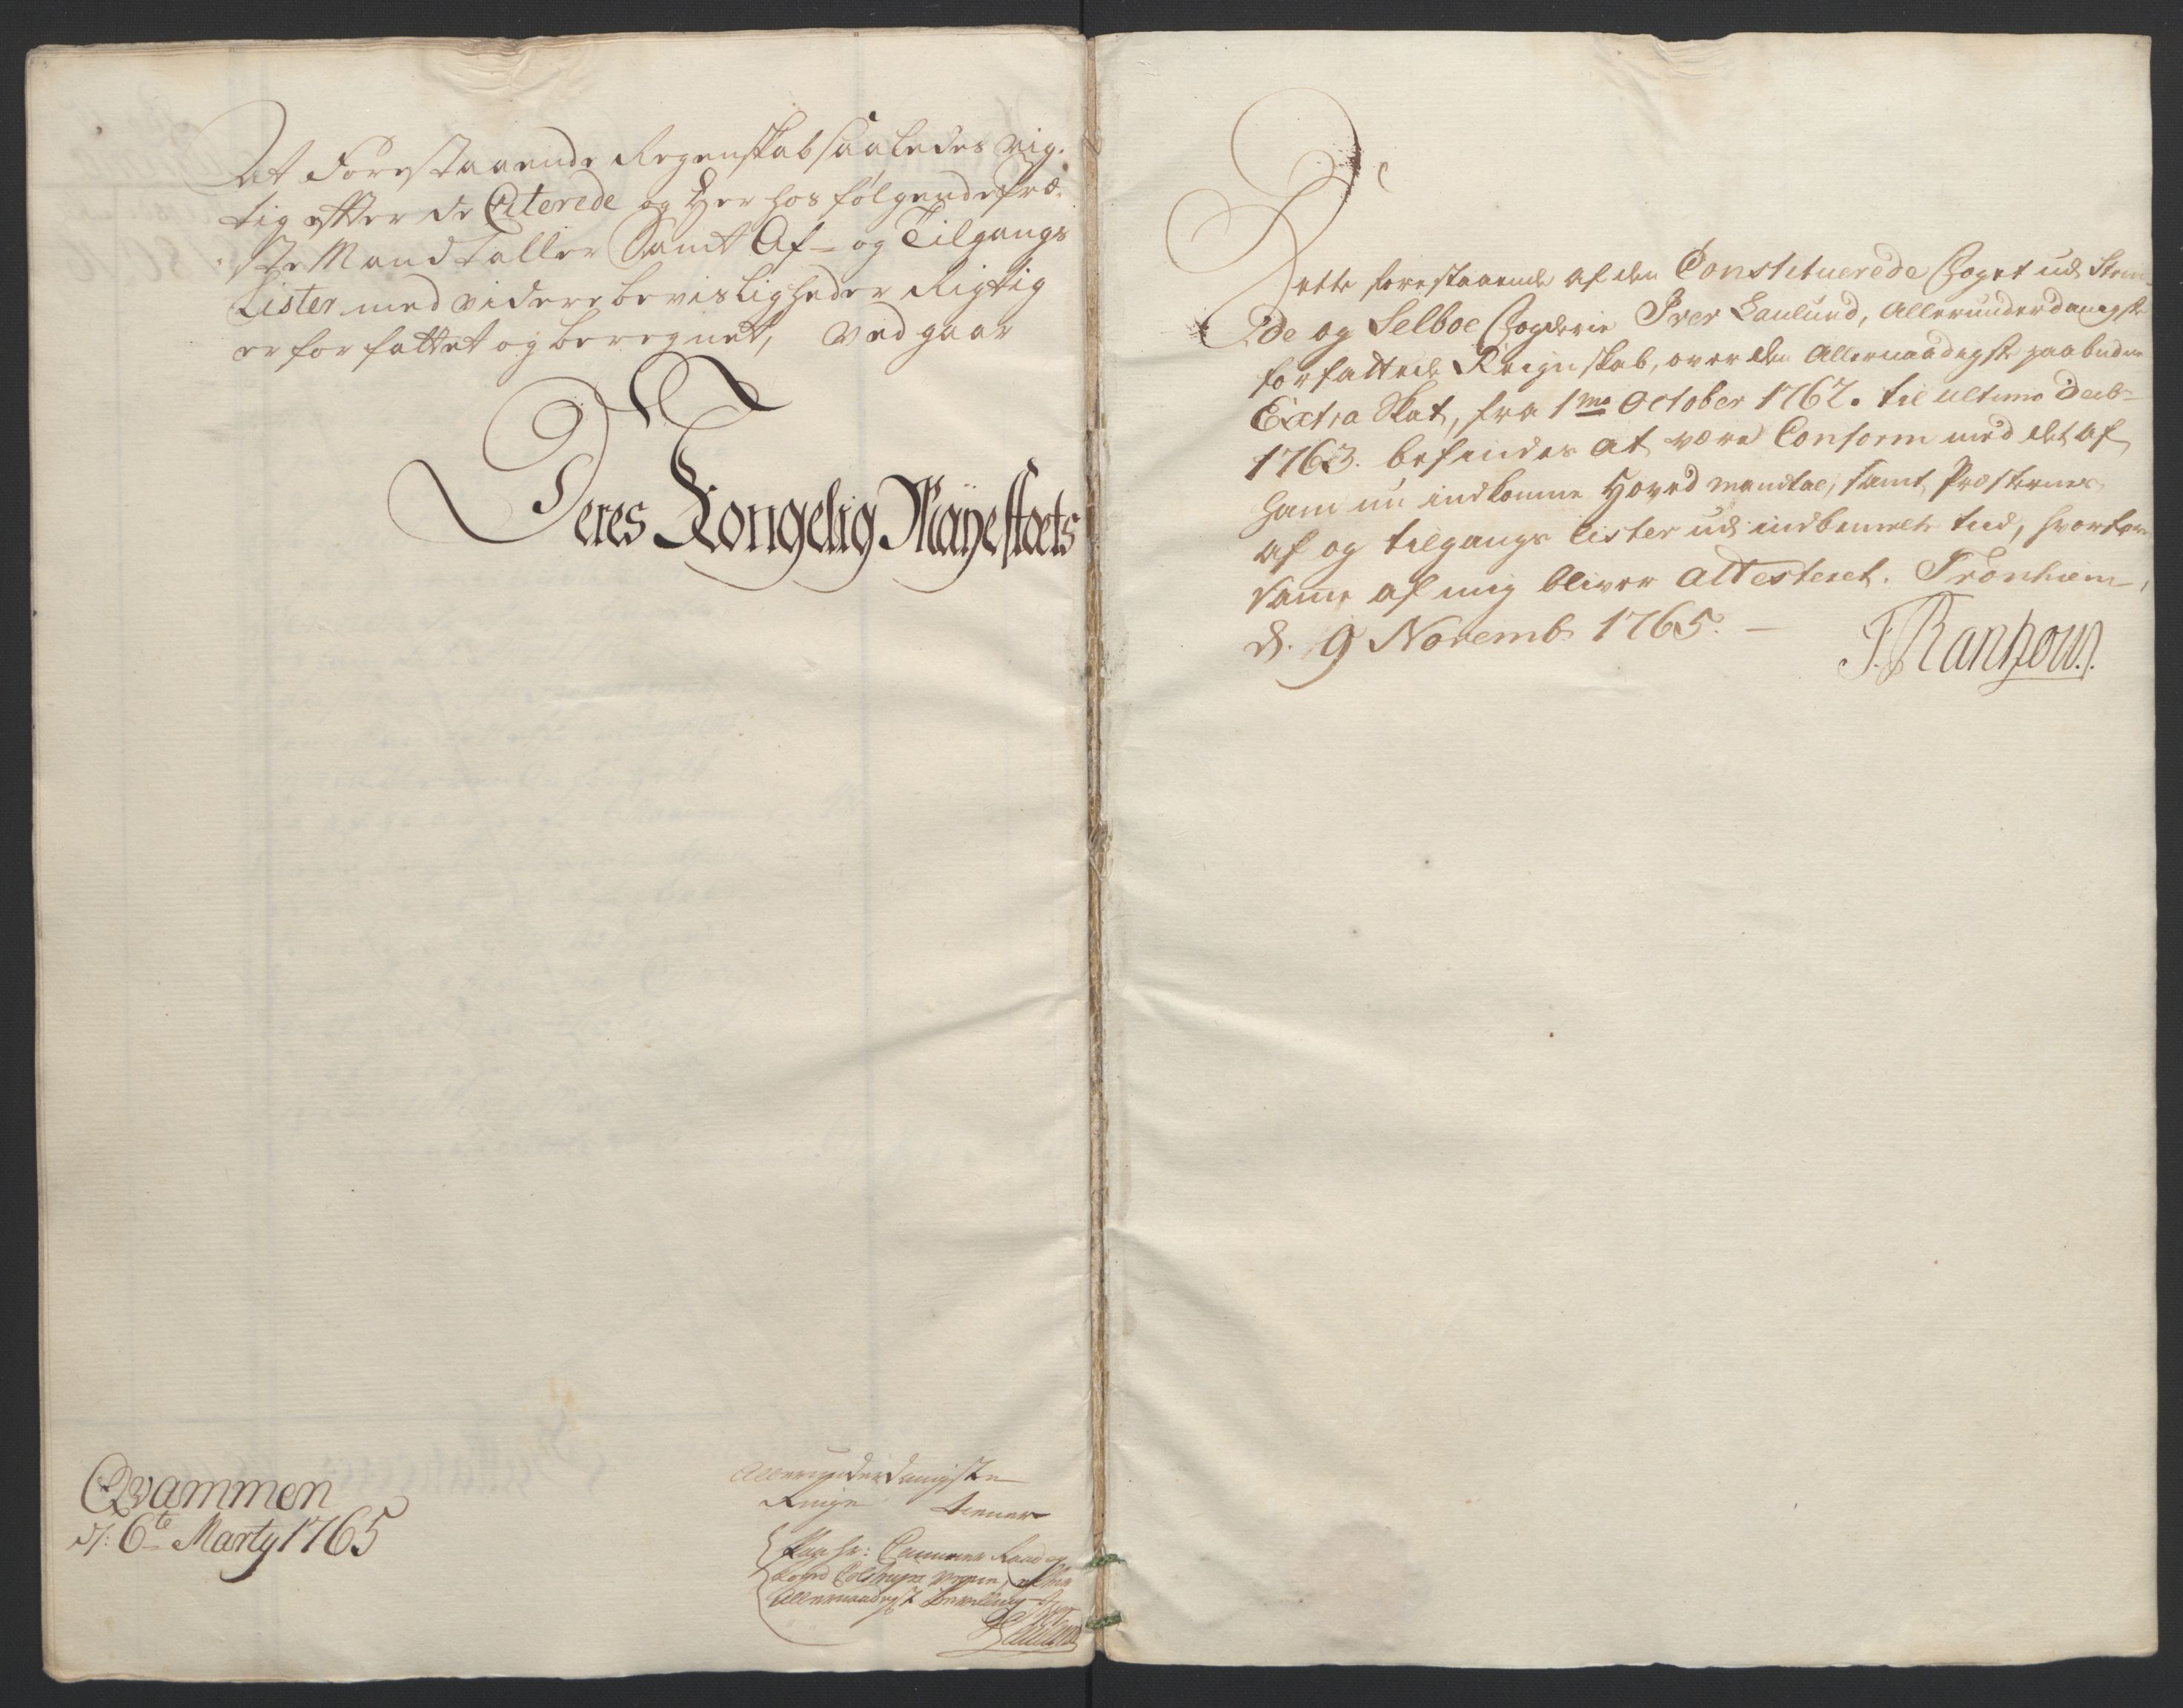 At Forestaaende Regenskab saaledes rig-
tig efter de Citerede og Her hos følgende Præ-
ste Mandtaller Samt Af- og Tilgangs
Lister med videre bevisligheder Rigtig
er forfattet og beregnet, Vedgaar
Deres Kongelig Maÿestæts
Qvammen
d: 6te Marty 1765
Allerunderdanigste
Ringe tiener
Paa Hr: Cammer Raad og
Foged Vegne, efter
Allernaadigst Bevilling
Dette forestaaende af den Constituerede Foget udi Strin-
de og Selboe Fogderie Iver Laulund, Allerunderdanigste
forfattede Reignskab, over den Allernaadigste paabudne
Extra Skat, fra 1mo October 1762. til ultimo Decb-
1763. befindes at være Conform med det af
ham nu indkomne Hoved mandtal, samt Præsternes
af og tilgangs lister udi indbemelte tid, hvorfore
samme af mig bliver Attesteret. Tronhiem,
d. 9 Novemb. 1765. —
J. Rantzow.